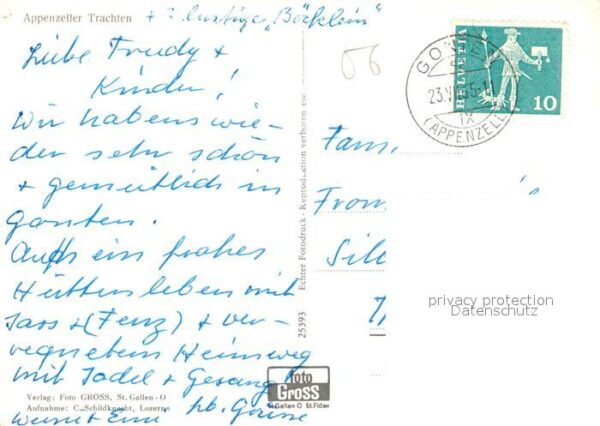 Appenzeller Trachten
+ 2 lustige „Böcklein"
Liebe Trudy +
Kinder!
Wir habens wie-
der sehr schön
+ gemütlich in
Gonten.
Auch ein frohes
Hüttenleben mit
Jass + (Fenz) + ver-
regnetem Heimweg
mit Jodel + Gesang
hb. Grüsse
Verlag: Foto GROSS, St. Gallen-O
Aufnahme: C. Schildknecht, Luzern
foto
GROSS
St. Gallen O St. Fiden
25393 Echter Fotodruck - Reproduktion verboten
66
HELVETIA
10
GON
23.V
65-1
IX
(APPENZELL)
Fam.
Fron
Sil
privacy protection
Datenschutz